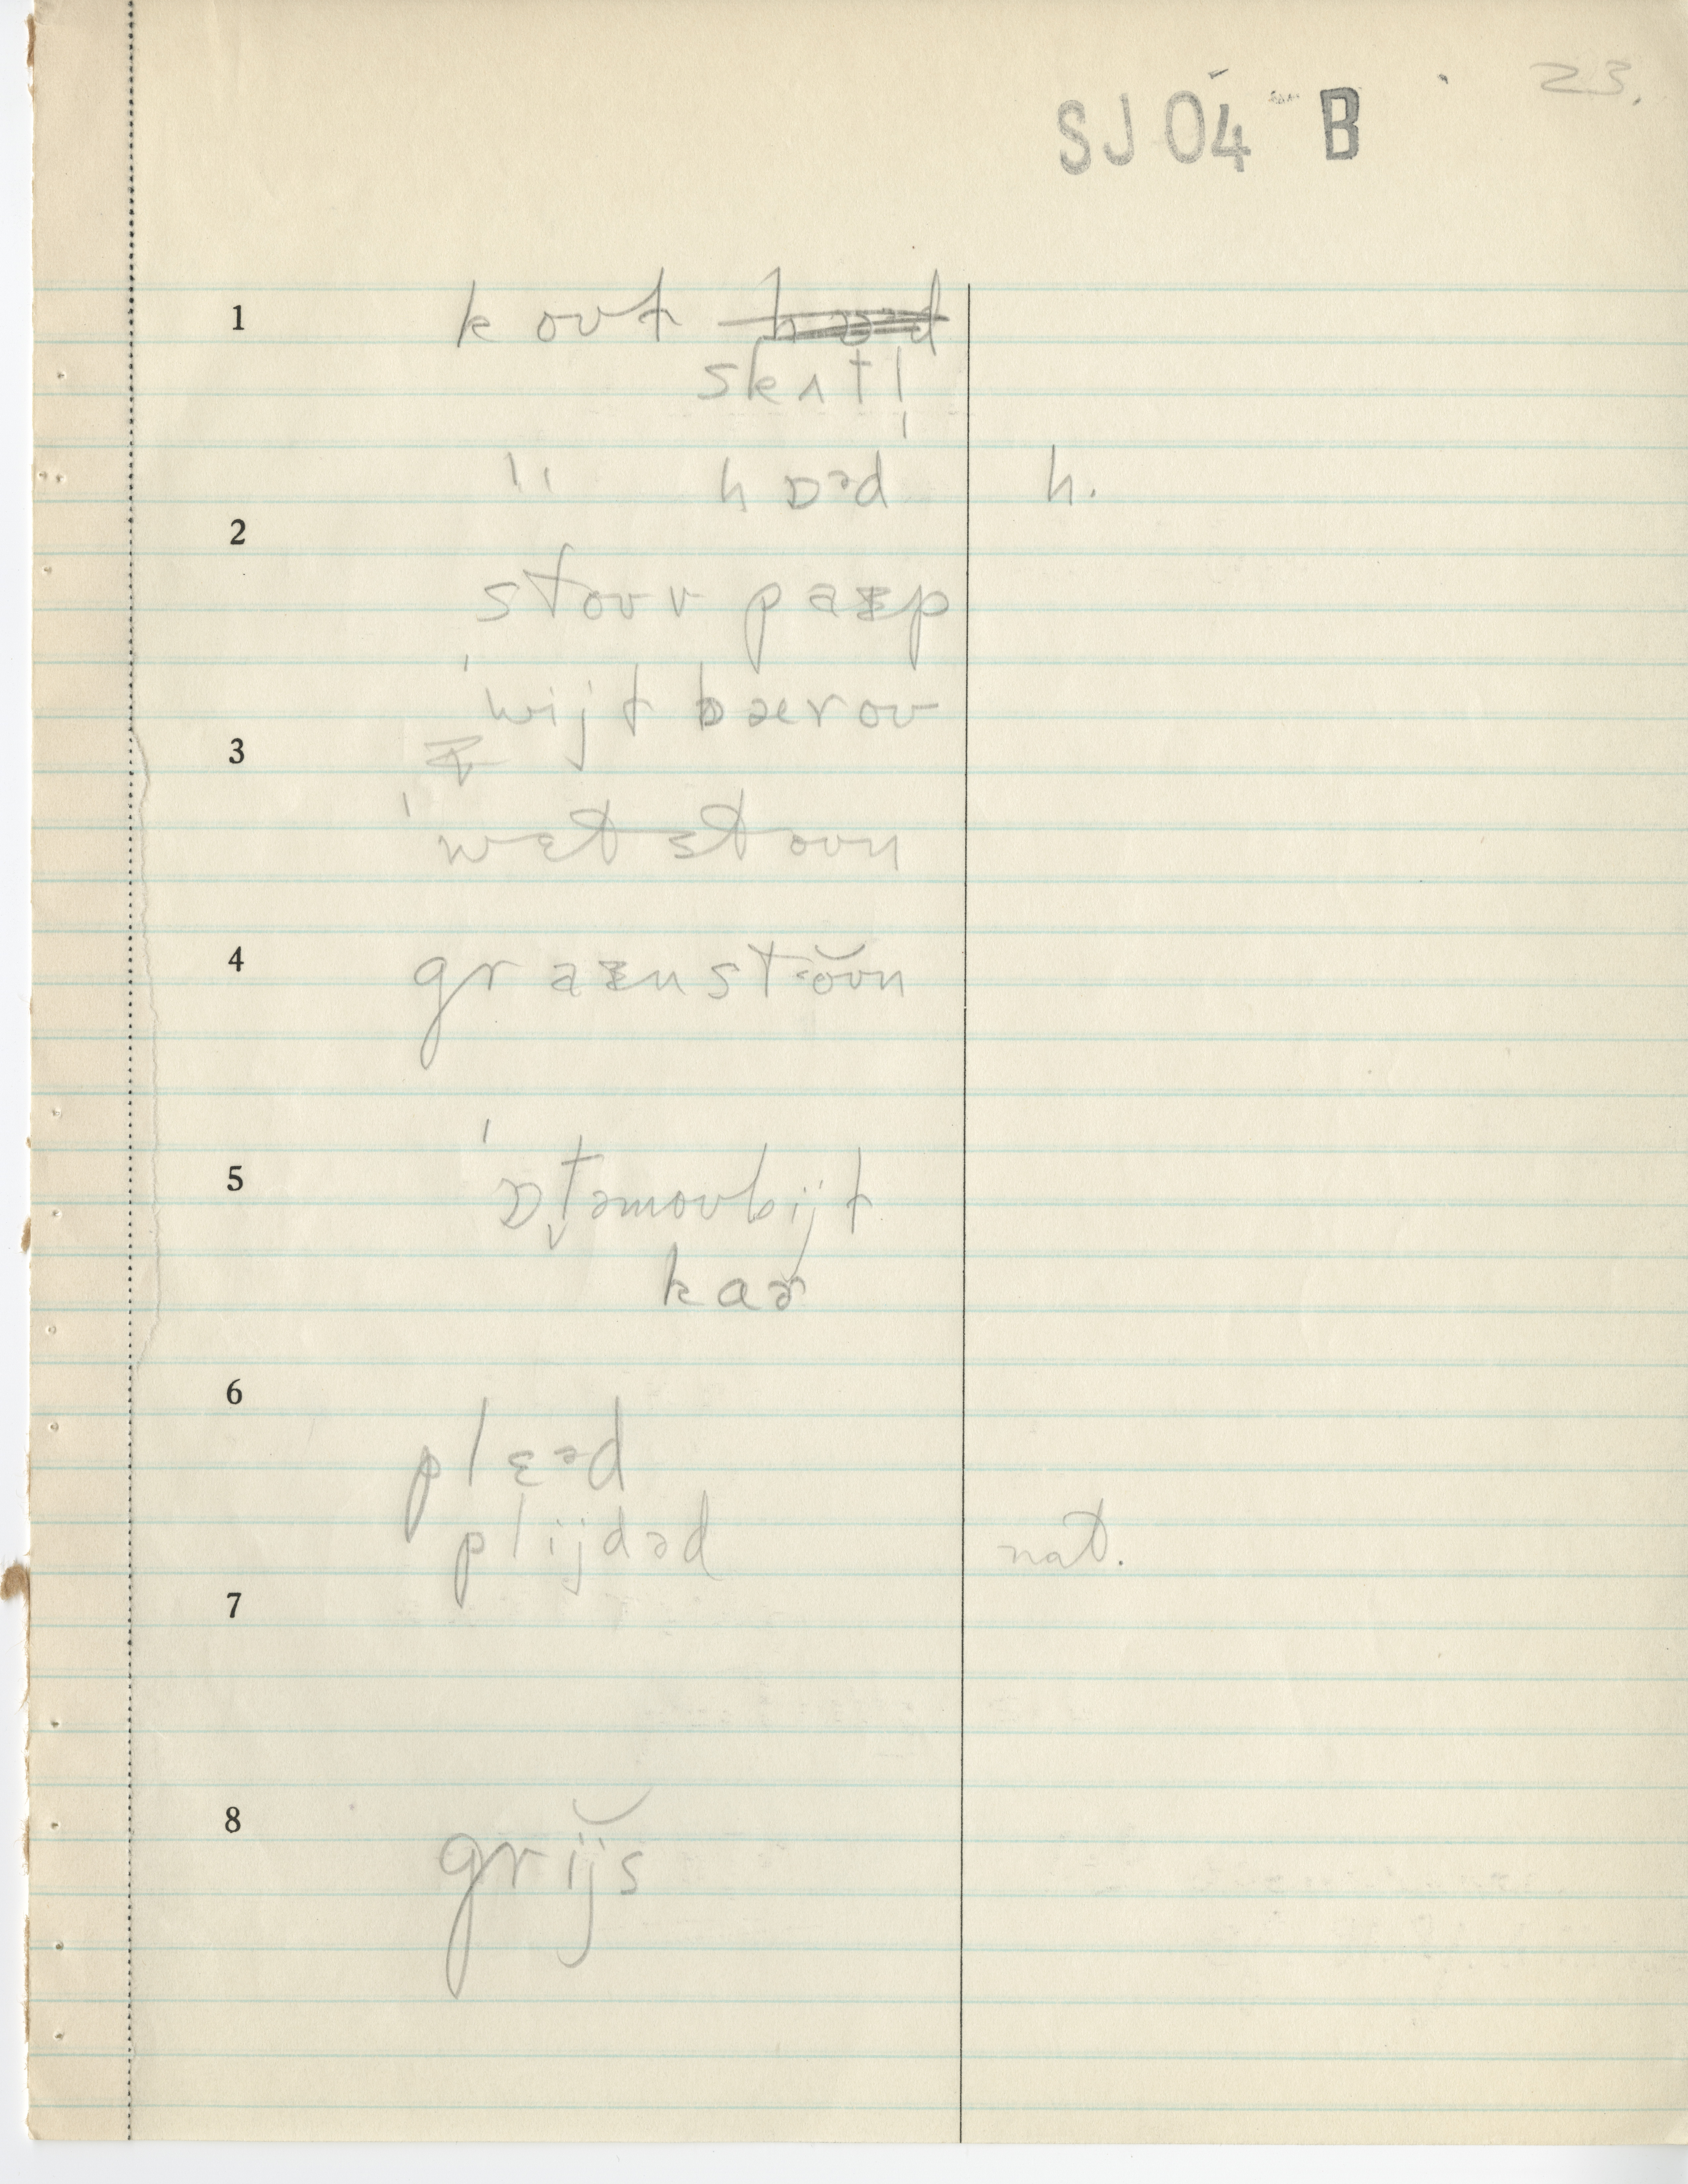 23.
SJ 04 B
1 koʊɫ hɒᵊd
skʌtl̩
" hɒᵊd h.
2
stoʊv paɪp
ˈwijɫ bæroʊ
3
ˈwɛtstoʊn
4 graɪnstŏʊn
5 ˈɒt̬əmoʊbijɫ
kaɚ
6
plɛᵊd
plijdəd nat.
7
8 grĭjs